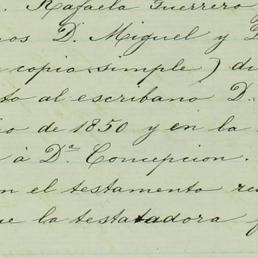 . Rafaela Guerrero
os D. Miguel y D
copia simple) di
to al escribano D.
o de 1850 y en la
á Dª Concepcion.
n el testamento re
e la testatadora f